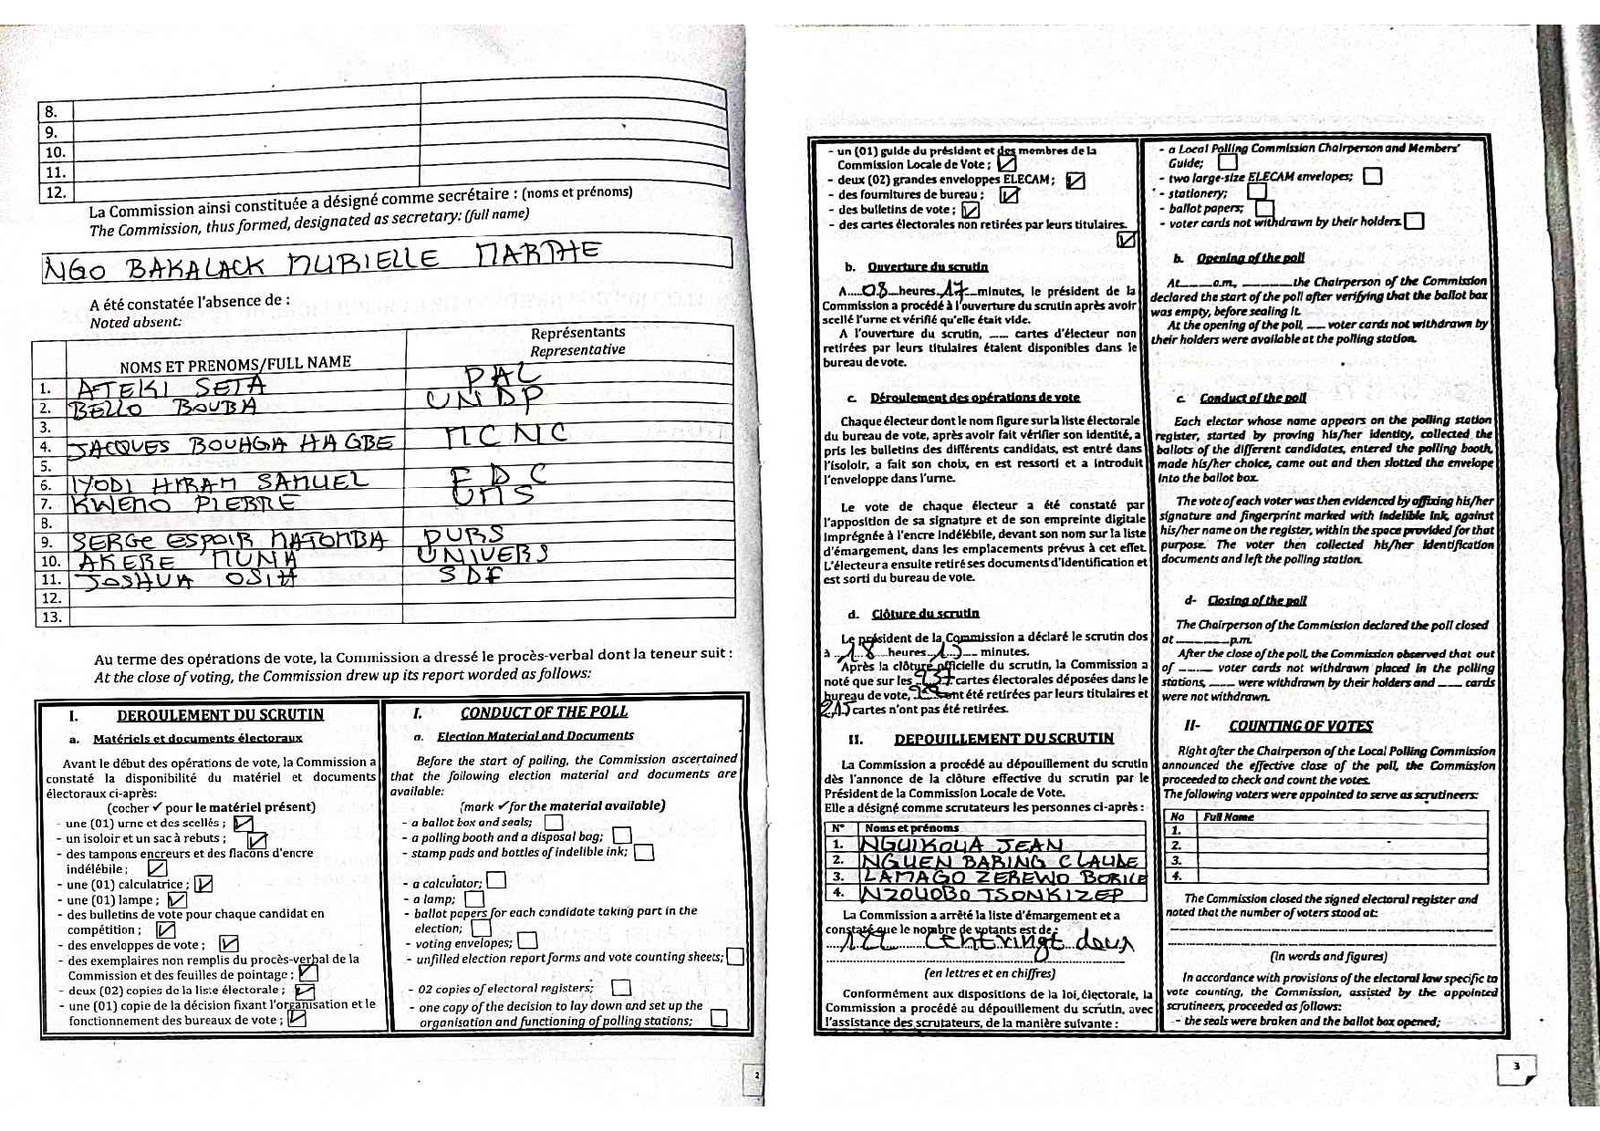 8.
9.
10.
11.
12.
La Commission ainsi constituée a désigné comme secrétaire : (noms et prénoms)
The Commission, thus formed, designated as secretary: (full name)
NGO BAKALACK MURIELLE MARTHE
A été constatée l'absence de :
Noted absent:
NOMS ET PRENOMS/FULL NAME
Représentants
Representative
1. ATEKI SETA PAL
2. BELLO BOUBA UNDP
3.
4. JACQUES BOUHGA HAGBE MCNC
5.
6. IYODI HIRAM SAMUEL FDC
7. KWEMO PIERRE UMS
8.
9. SERGE ESPOIR MATOMBA PURS
10. AKERE MUNA UNIVERS
11. JOSHUA OSIH SDF
12.
13.
Au terme des opérations de vote, la Commission a dressé le procès-verbal dont la teneur suit :
At the close of voting, the Commission drew up its report worded as follows:
I. DEROULEMENT DU SCRUTIN
a. Matériels et documents électoraux
Avant le début des opérations de vote, la Commission a
constaté la disponibilité du matériel et documents
électoraux ci-après:
(cocher ✓ pour le matériel présent)
- une (01) urne et des scellés ; ☑
- un isoloir et un sac à rebuts ; ☑
- des tampons encreurs et des flacons d'encre
indélébile ; ☑
- une (01) calculatrice ; ☑
- une (01) lampe ; ☑
- des bulletins de vote pour chaque candidat en
compétition ; ☑
- des enveloppes de vote ; ☑
- des exemplaires non remplis du procès-verbal de la
Commission et des feuilles de pointage ; ☑
- deux (02) copies de la liste électorale ; ☑
- une (01) copie de la décision fixant l'organisation et le
fonctionnement des bureaux de vote ; ☑
I. CONDUCT OF THE POLL
a. Election Material and Documents
Before the start of polling, the Commission ascertained
that the following election material and documents are
available:
(mark ✓ for the material available)
- a ballot box and seals; ☐
- a polling booth and a disposal bag; ☐
- stamp pads and bottles of indelible ink; ☐
- a calculator; ☐
- a lamp; ☐
- ballot papers for each candidate taking part in the
election; ☐
- voting envelopes; ☐
- unfilled election report forms and vote counting sheets; ☐
- 02 copies of electoral registers; ☐
- one copy of the decision to lay down and set up the
organisation and functioning of polling stations; ☐
2
- un (01) guide du président et des membres de la
Commission Locale de Vote ; ☑
- deux (02) grandes enveloppes ELECAM ; ☑
- des fournitures de bureau ; ☑
- des bulletins de vote ; ☑
- des cartes électorales non retirées par leurs titulaires.
☑
b. Ouverture du scrutin
A....08..heures..17..minutes, le président de la
Commission a procédé à l'ouverture du scrutin après avoir
scellé l'urne et vérifié qu'elle était vide.
A l'ouverture du scrutin, ___ cartes d'électeur non
retirées par leurs titulaires étaient disponibles dans le
bureau de vote.
c. Déroulement des opérations de vote
Chaque électeur dont le nom figure sur la liste électorale
du bureau de vote, après avoir fait vérifier son identité, a
pris les bulletins des différents candidats, est entré dans
l'isoloir, a fait son choix, en est ressorti et a introduit
l'enveloppe dans l'urne.
Le vote de chaque électeur a été constaté par
l'apposition de sa signature et de son empreinte digitale
imprégnée à l'encre indélébile, devant son nom sur la liste
d'émargement, dans les emplacements prévus à cet effet.
L'électeur a ensuite retiré ses documents d'identification et
est sorti du bureau de vote.
d. Clôture du scrutin
Le président de la Commission a déclaré le scrutin clos
à ..18..heures..13.. minutes.
Après la clôture officielle du scrutin, la Commission a
noté que sur les 937 cartes électorales déposées dans le
bureau de vote, ont été retirées par leurs titulaires et
215 cartes n'ont pas été retirées.
II. DEPOUILLEMENT DU SCRUTIN
La Commission a procédé au dépouillement du scrutin
dès l'annonce de la clôture effective du scrutin par le
Président de la Commission Locale de Vote.
Elle a désigné comme scrutateurs les personnes ci-après :
N° Noms et prénoms
1. NGUIKOUA JEAN
2. NGUEN BARING CLAUDE
3. LAMAGO ZEREWO BORICE
4. NZOUOBO TSONKIZEP
La Commission a arrêté la liste d'émargement et a
constaté que le nombre de votants est de :
122 cent vingt deux
(en lettres et en chiffres)
Conformément aux dispositions de la loi électorale, la
Commission a procédé au dépouillement du scrutin, avec
l'assistance des scrutateurs, de la manière suivante :
- a Local Polling Commission Chairperson and Members'
Guide; ☐
- two large-size ELECAM envelopes; ☐
- stationery; ☐
- ballot papers; ☐
- voter cards not withdrawn by their holders. ☐
b. Opening of the poll
At______a.m, __________the Chairperson of the Commission
declared the start of the poll after verifying that the ballot box
was empty, before sealing it.
At the opening of the poll, ___ voter cards not withdrawn by
their holders were available at the polling station.
c. Conduct of the poll
Each elector whose name appears on the polling station
register, started by proving his/her identity, collected the
ballots of the different candidates, entered the polling booth,
made his/her choice, came out and then slotted the envelope
into the ballot box.
The vote of each voter was then evidenced by affixing his/her
signature and fingerprint marked with indelible ink, against
his/her name on the register, within the space provided for that
purpose. The voter then collected his/her identification
documents and left the polling station.
d- Closing of the poll
The Chairperson of the Commission declared the poll closed
at __________p.m.
After the close of the poll, the Commission observed that out
of ______ voter cards not withdrawn placed in the polling
stations, _____ were withdrawn by their holders and _____ cards
were not withdrawn.
II- COUNTING OF VOTES
Right after the Chairperson of the Local Polling Commission
announced the effective close of the poll, the Commission
proceeded to check and count the votes.
The following voters were appointed to serve as scrutineers:
No Full Name
1.
2.
3.
4.
The Commission closed the signed electoral register and
noted that the number of voters stood at:
(in words and figures)
In accordance with provisions of the electoral law specific to
vote counting, the Commission, assisted by the appointed
scrutineers, proceeded as follows:
- the seals were broken and the ballot box opened;
3